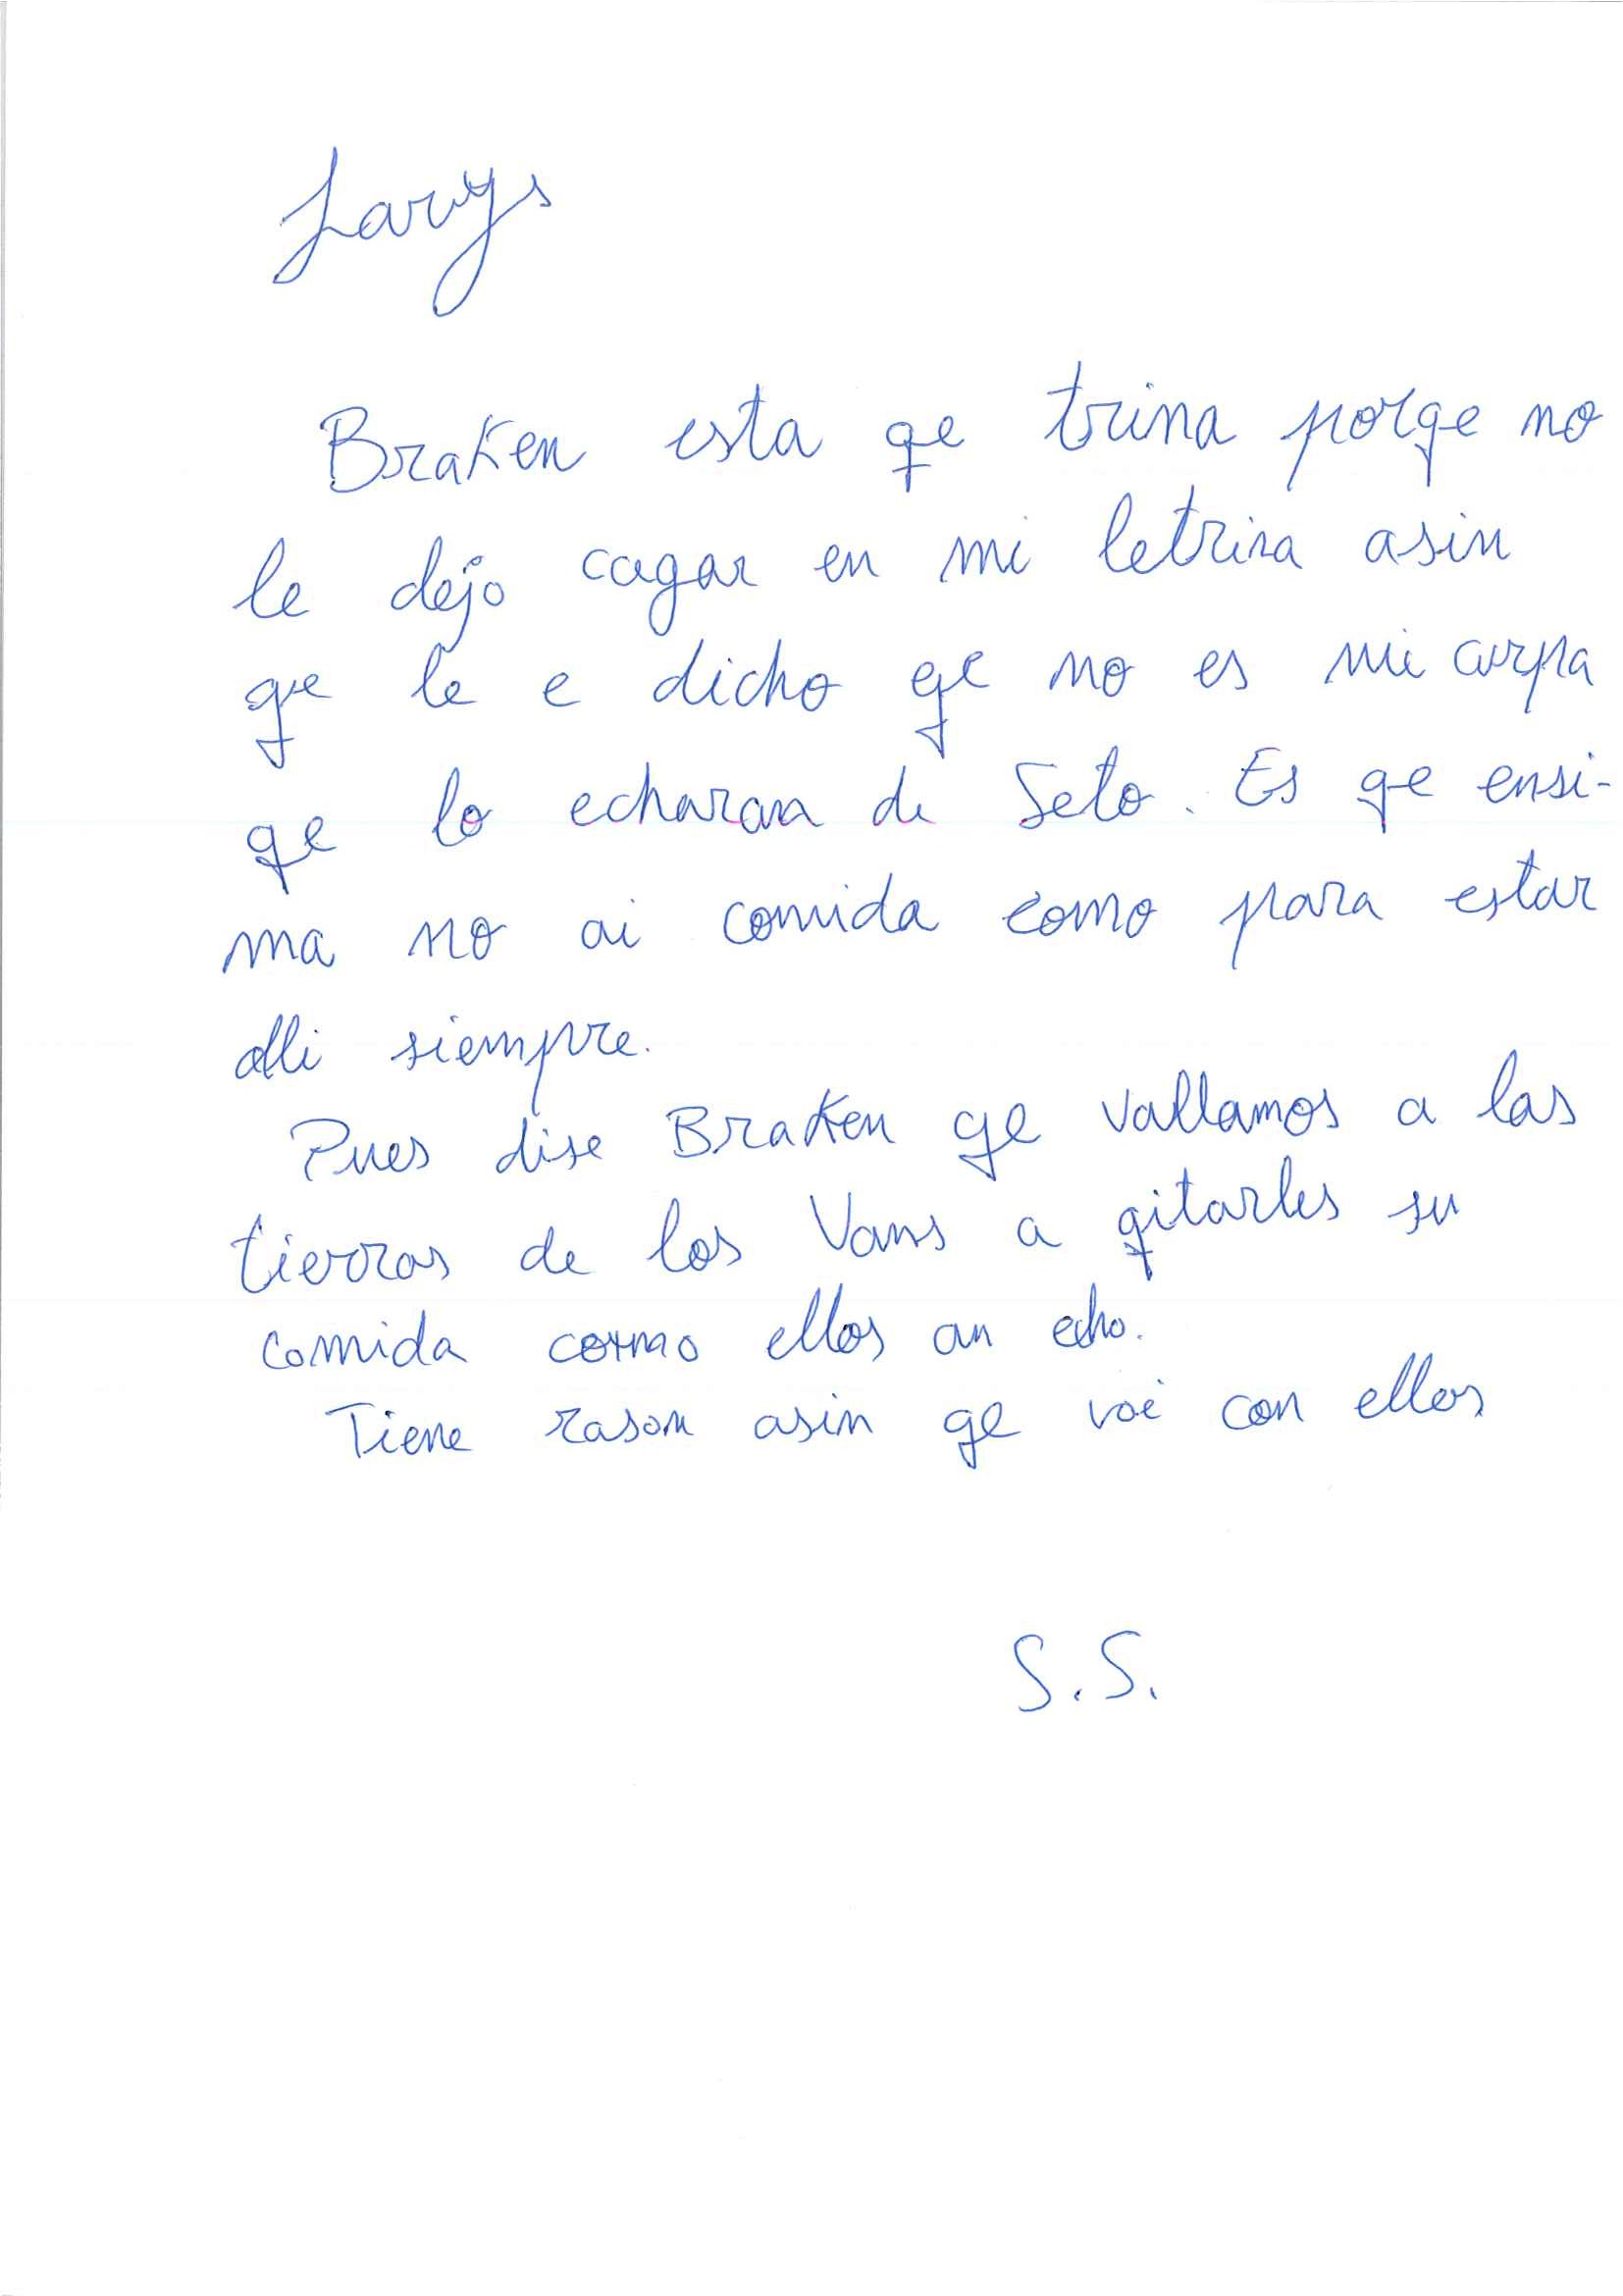 Larys
Braken esta qe trina porqe no
le dejo cagar en mi letrina asin
qe le e dicho qe no es mi curpa
qe lo echaran de Seto. Es qe ensi-
ma no ai comida como para estar
alli siempre.
Pues dise Braken qe vallamos a las
tierras de los Vans a qitarles su
comida como ellos an echo.
Tiene rason asin qe voi con ellos
S.S.